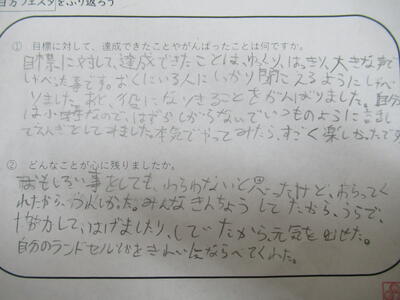 自方フェスタをふり返ろう
① 目標に対して、達成できたことやがんばったことは何ですか。
目標に対して、達成できたことは、ゆっくり、はっきり、大きな声で
しゃべった事です。おくにいる人にしっかり聞こえるようにしゃべ
りました。あと、役になりきることをがんばりました。自分
は小
なので、はずかしがらないでいつものように
てえんぎとしてしました。本気でやってみたら、すごく楽しかったです
② どんなことが心に残りましたか。
おもしろい事をしても、わらわないと思ったけど、わらってく
れたから、うれしかった。みんなきんちょうしてたから、うらで、
協力して、はげましたり、してたから、元気を出せた。
自分のランドセルとかをきれいにならべてくれた。